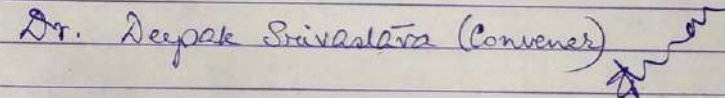 Dr. Deepak Srivastava (Convener)